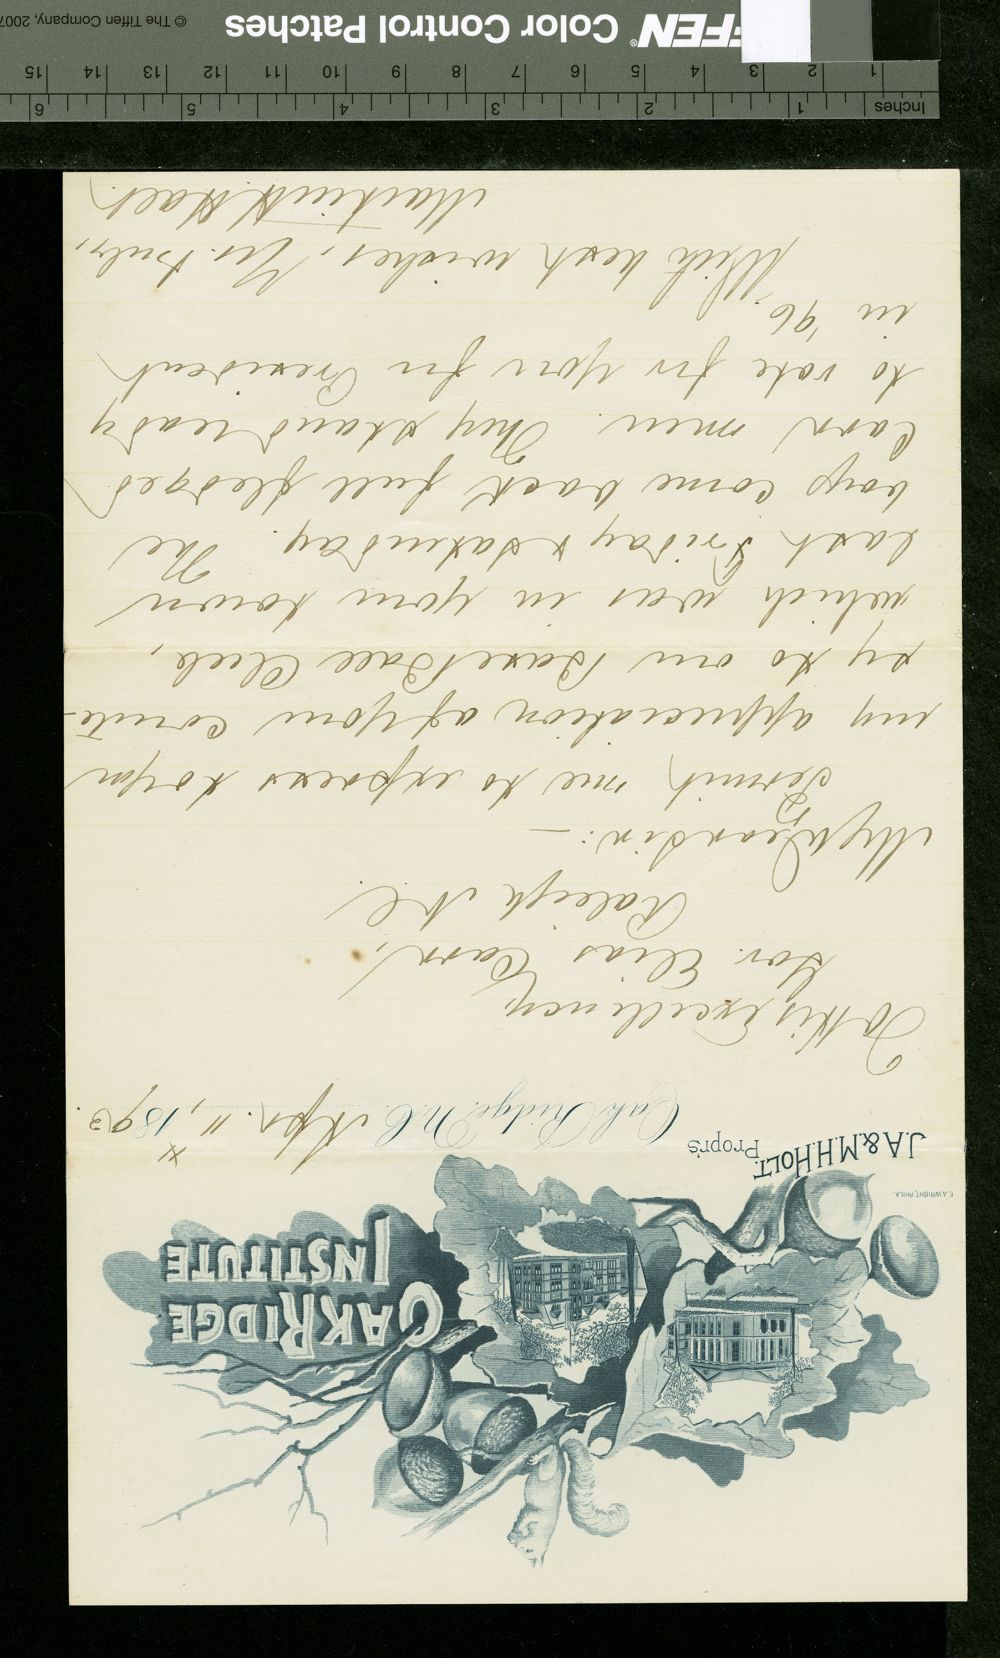 OAK RIDGE
INSTITUTE
E.A.WRIGHT, PHILA.
J.A. & M.H. HOLT.
Propr's
Oak Ridge, N.C. Apr. 11, 1893.
To His Excellency,
Gov. Elias Carr,
Raleigh N.C.
My Dear Sir:—
Permit me to express to you
my appreciation of your courte-
sy to our Base Ball Club,
which was in your town
last Friday & Saturday. The
boys come back full fledged
Carr men. They stand ready
to vote for you for President
in '96.
With best wishes, Yrs. truly,
Martin H. Holt.
Inches 1 2 3 4 5 6
1 2 3 4 5 6 7 8 9 10 11 12 13 14 15
FFEN® Color Control Patches
© The Tiffen Company, 2007